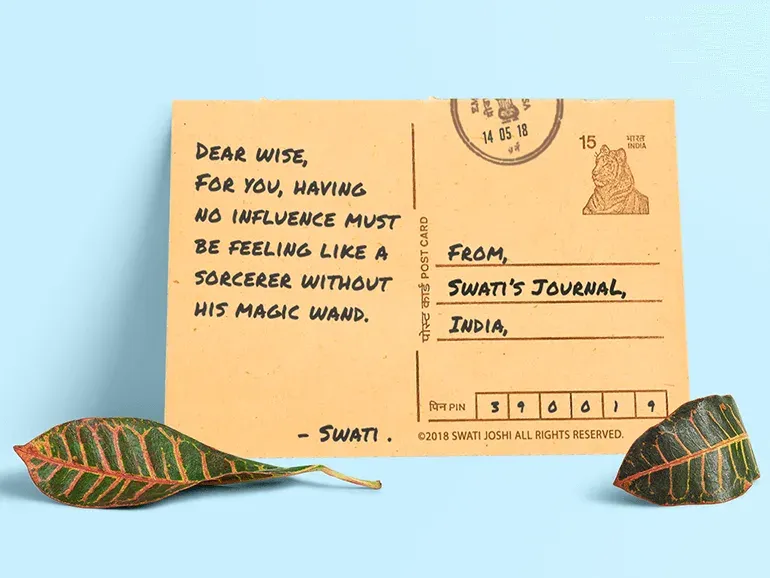 DEAR WISE,
FOR YOU, HAVING
NO INFLUENCE MUST
BE FEELING LIKE A
SORCERER WITHOUT
HIS MAGIC WAND.
- SWATI.
पोस्ट कार्ड POST CARD
14 05 18
15
भारत
INDIA
FROM,
SWATI'S JOURNAL,
INDIA,
पिन PIN 3 9 0 0 1 9
©2018 SWATI JOSHI ALL RIGHTS RESERVED.